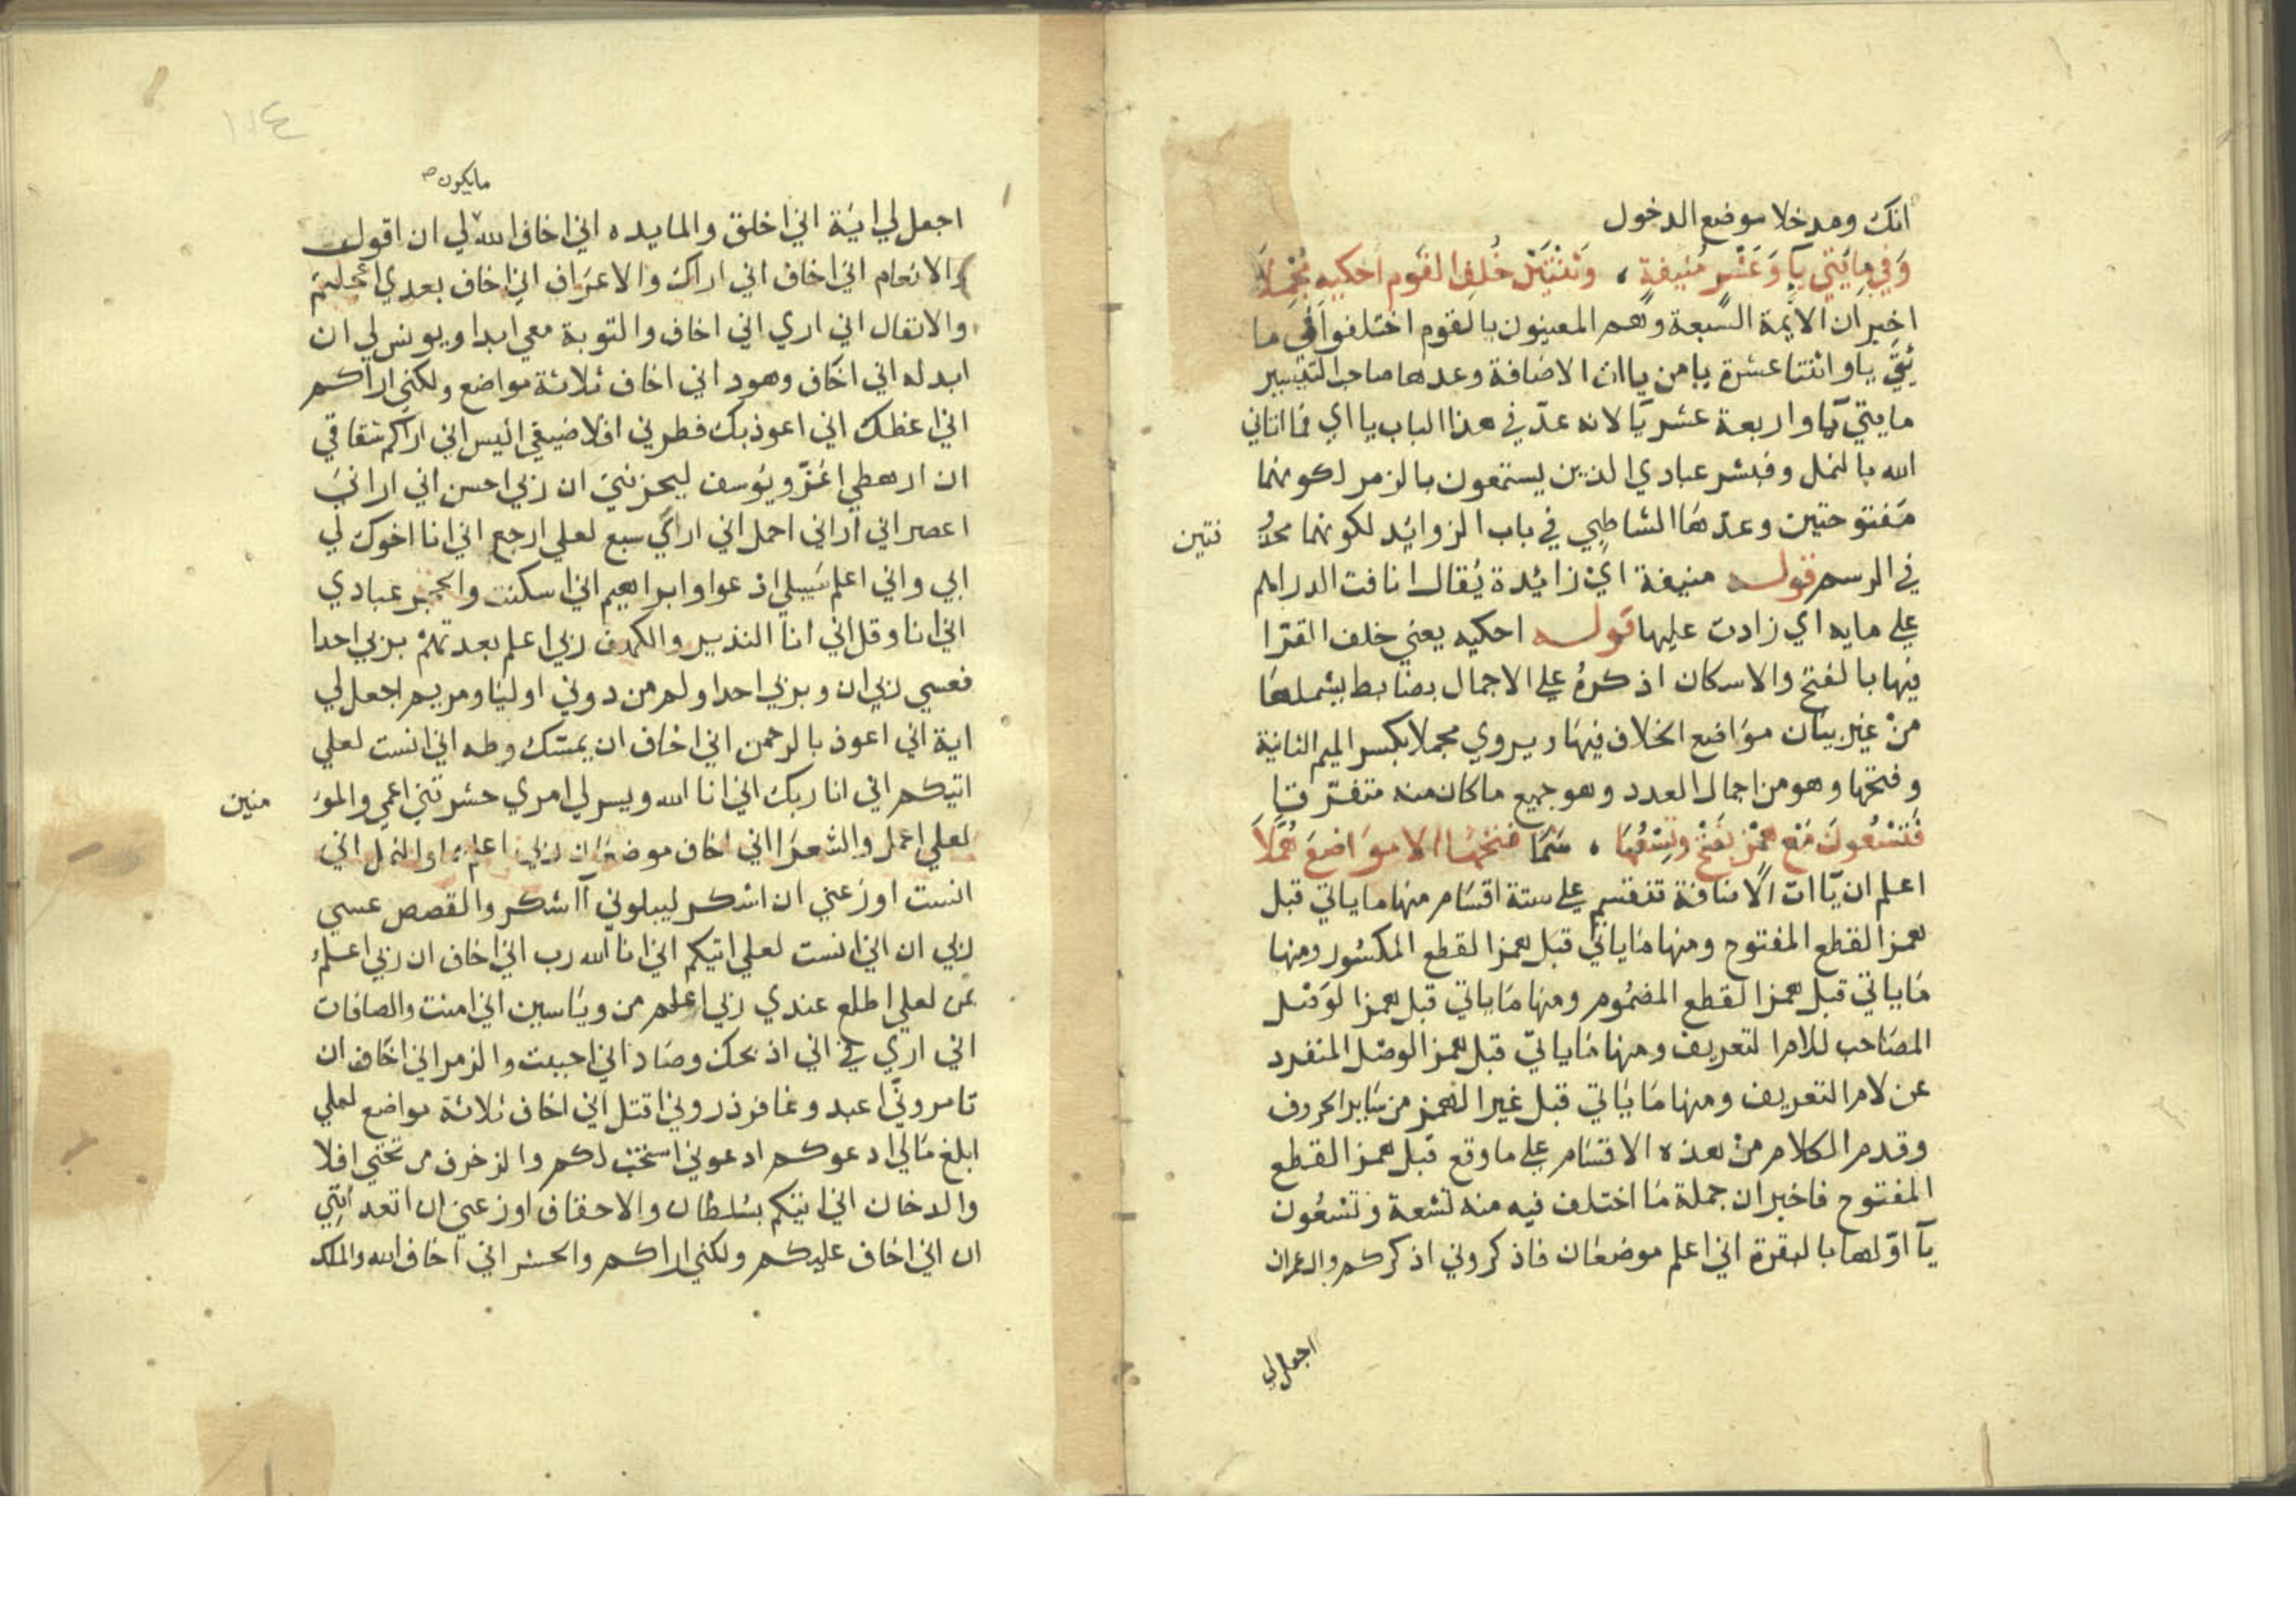 انك ومدخلا موضع الدخول
وَفي مِايَتَي يآ وَعَشْرٍ مُنيفةٍ ، وَثنْتَيْن خُلفِ القَوم احكيه مُجْمِلاَ
اخبر ان الأيمة السبعة وهم المعينون بالقوم اختلفوا في ما
ئتي يا واثنتا عشرة يا من ياات الاضافة وعدها صاحب التيسير
مايتي يا واربعة عشر يا لانه عدّ في هذا الباب يا اي فما اتاني
الله بالنمل وفبشر عبادي الذين يستمعون بالزمر لكونهما
مفتوحتين وعدّهما الشاطبي في باب الزوايد لكونهما محذو
فتين
في الرسم قوله منيفة اي زائدة يُقال انافت الدراهم
علي مايه اي زادت عليها قوله احكيه يعني خلف القرّا
فيها بالفتح والاسكان اذكرهُ علي الاجمال بضابط يشملها
منْ غير بيَان موَاضع الخلاف فيهَا ويروي مجملا بكسر الميم الثانية
وفتحها وهو من اجمال العدد وهو جميع ما كان منه متفرّقا
فَتَسْعُونَ مَعْ هَمْز بفَتْح وتِسْعُهَا ، سَمَا فتحُهَا الا موَاضعَ هُمَّلاَ
اعلم ان يَاات الاضافة تنقسم علي ستة اقسَام منها ما ياتي قبل
همز القطع المفتوح ومنها مَا ياتي قبَل همز القطع المكسُور ومنها
مَا ياتي قبل همز القطع المضمُوم ومنها مَا ياتي قبل همز الوَصْل
المصَاحب للام التعريف ومنها مَا ياتي قبل همز الوصْل المنفرد
عن لام التعريف ومنها مَا يَاتي قبل غير الهمز من سَاير الحروف
وقدم الكلام منْ هذه الاقسَام علي ما وقع قبل همز القطع
المفتوح فاخبر ان جملة مَا اختلف فيه منه تسْعة وتسْعُون
يآ اوّلها بالبقرة اني اعلم موضعَان فاذكروني اذكركم وال عمران
اجعل لي
١١٤
ما يكون صح
اجعل لي ايَة اني اخلق والمايده اني اخاف الله لي ان اقول
والانعام اني اخاف اني اراك والاعرَاف اني اخاف بعدي اعجلتم
والانفال اني اري اني اخاف والتوبة معي ابدا ويونس لي ان
ابدله اني اخاف وهود اني اخاف ثلاثة مواضع ولكني اراكم
اني اعظك اني اعوذ بك فطرني افلا ضيفي اليس اني اراكم شقاقي
ان ارهطي اعَزّ ويُوسف ليحزنني ان ربي احسن اني اراني
اعصر اني اراني احمل اني اري سبع لعلي ارجع اني انا اخوك لي
ابي واني اعلم سَبيلي ادعوا وابراهيم اني اسكنت والحجر عبادي
اني انا وقل اني انا النذير والكهف ربي اعلم بعدتهمْ بربي احدا
فعسي ربي ان وبربي احدا ولم من دوني اوليَا ومريم اجعل لي
اية اني اعوذ بالرحمن اني اخاف ان يمسّك وطه اني انست لعلي
اتيكم اني انا ربك اني انا الله ويسر لي امري حشرتني اعمي والمؤ
منين
لعلي اعمل والشعرَا اني اخاف موضعَان ربي اعلم والنمل اني
انست اوزعني ان اشكر ليبلوني أاشكر والقصص عسي
ربي ان اني انست لعلي اتيكم اني انا الله رب اني اخاف ان ربي اعلمُ
بمن لعلي اطلع عندي ربي اعلم من ويَاسين اني امنت والصافات
اني اري في اني اذبحك وصَاد اني احببت والزمر اني اخاف ان
تامرونّي اعبد وغافر ذروني اقتل اني اخاف ثلاثة مواضع لعلي
ابلغ مَالي ادعوكم ادعوني استجب لكم والزخرف من تحتي افلا
والدخان اني اتيكم بسُلطان والاحقاف اوزعني ان اتعدانني
ان اني اخاف عليكم ولكني اراكم والحشر اني اخاف الله والملك